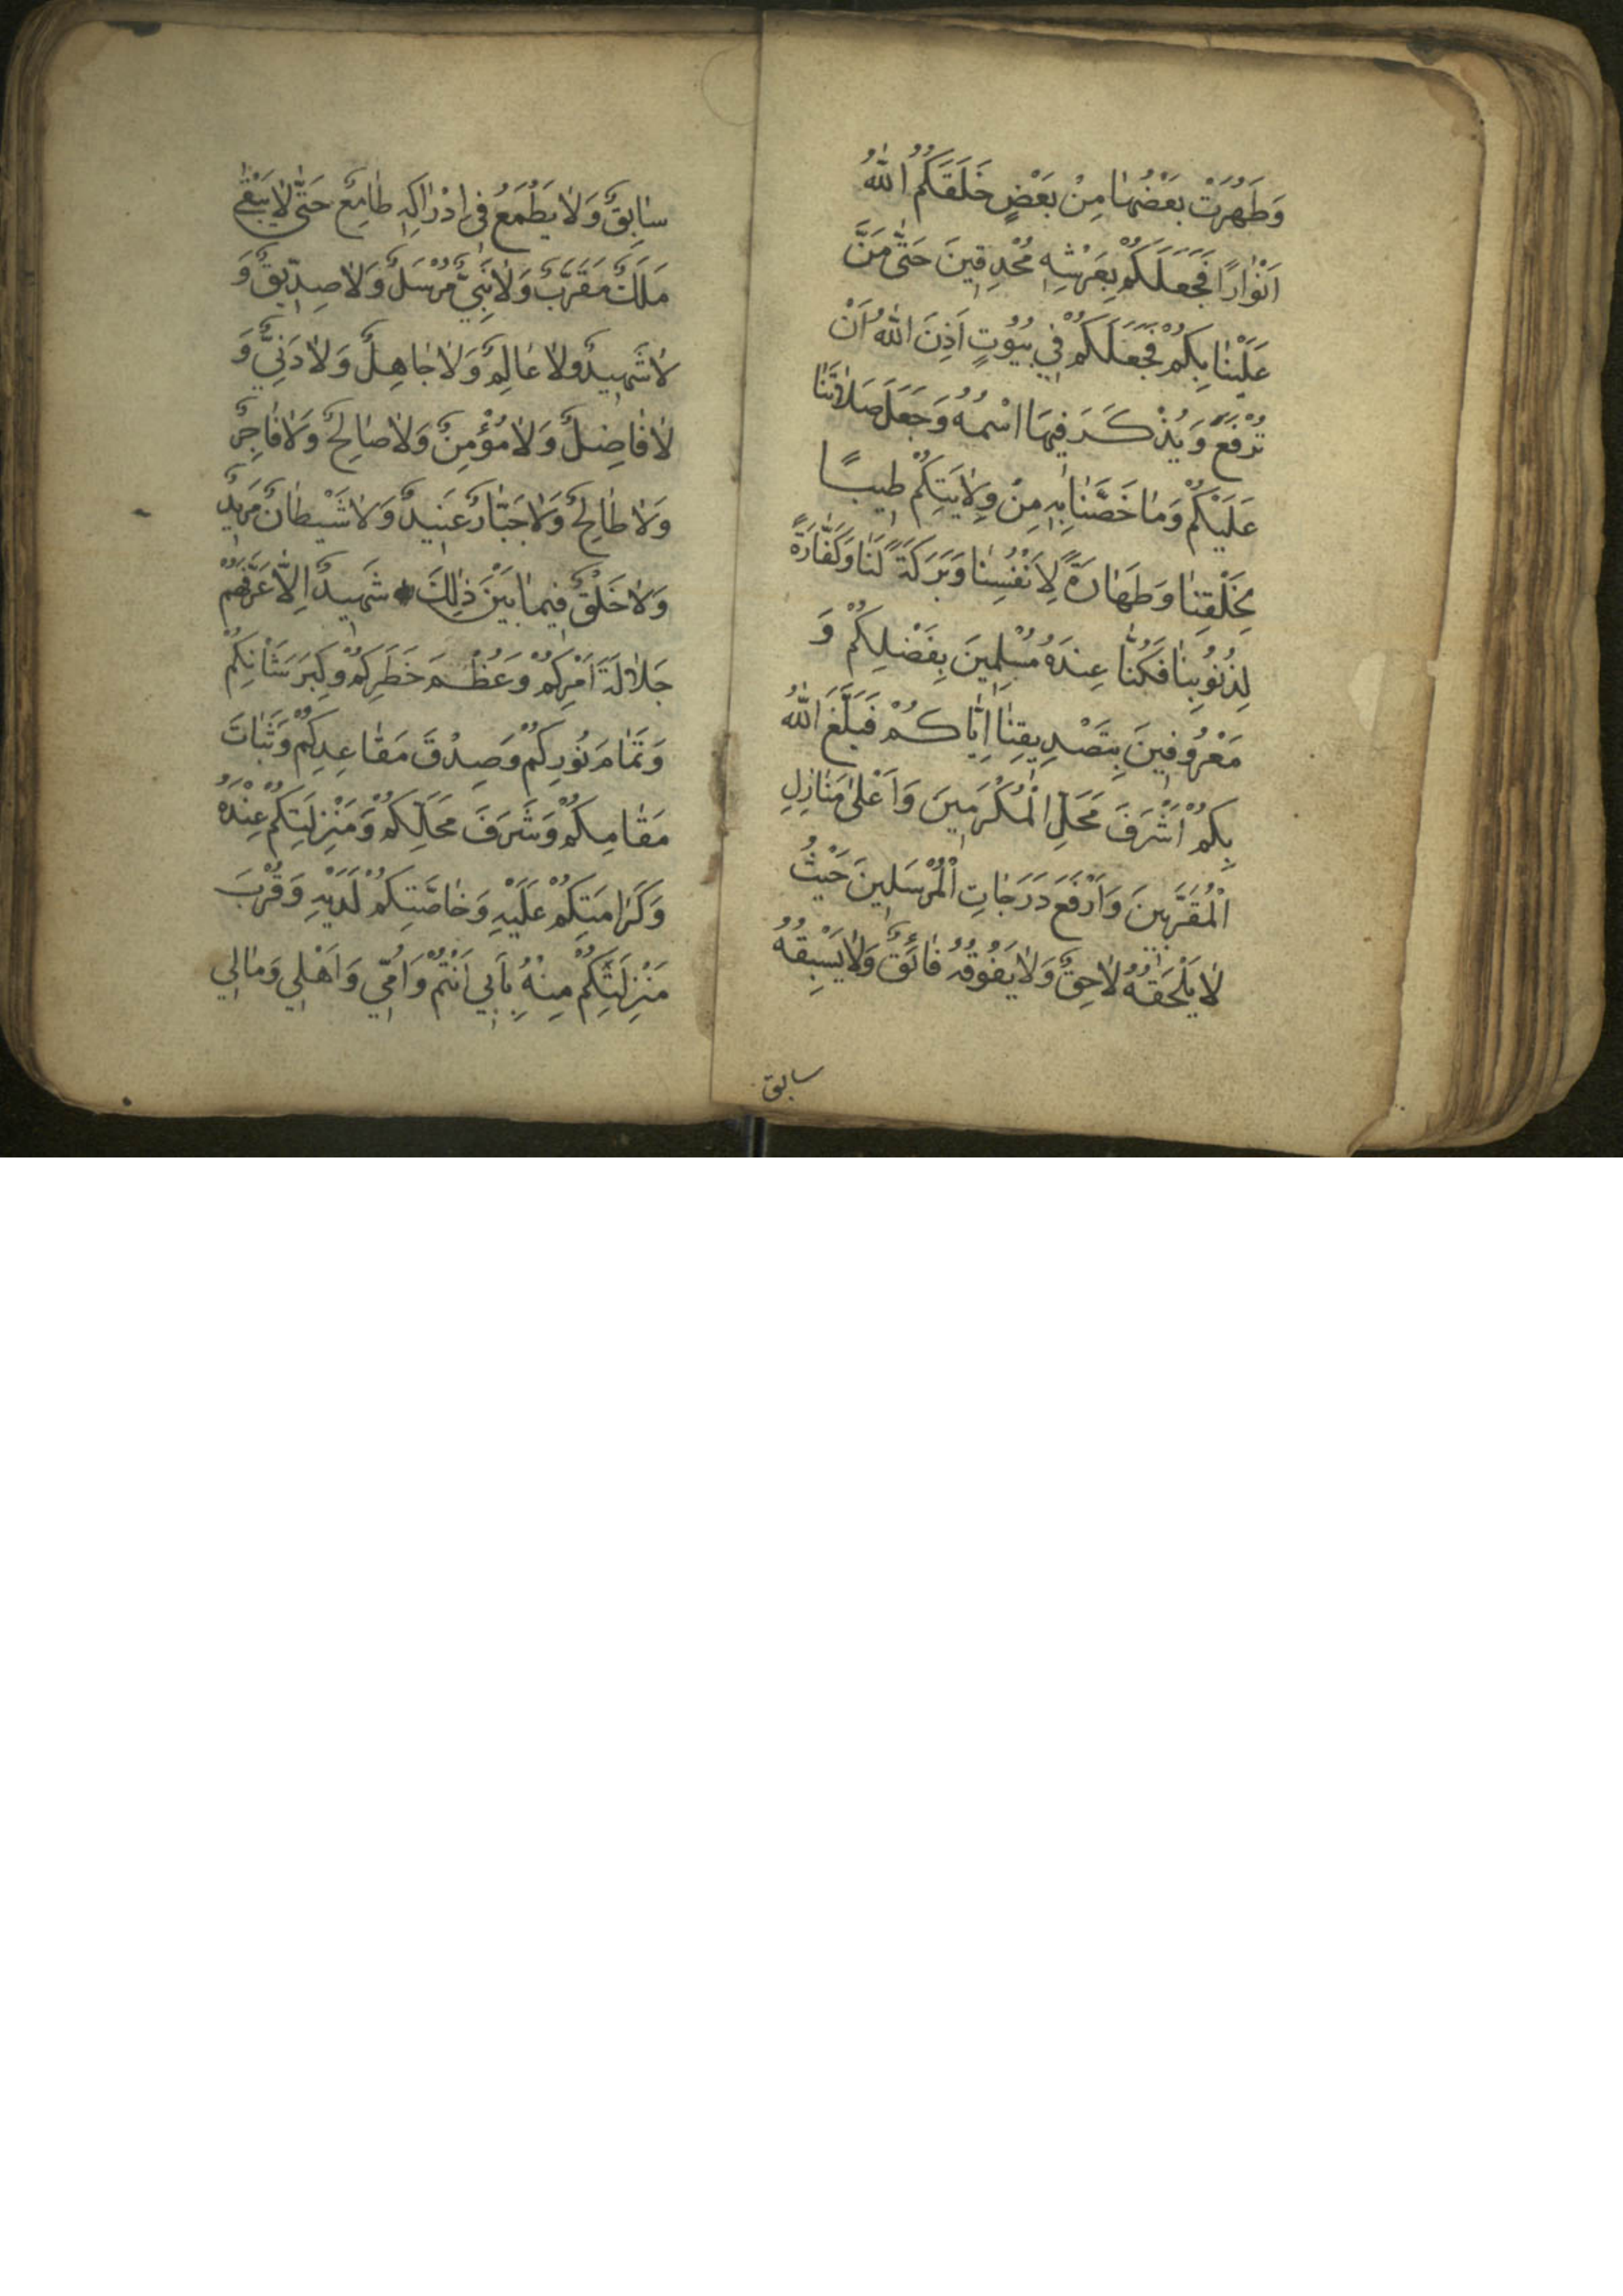 وَطَهُرَتْ بَعْضُهَا مِنْ بَعْضٍ خَلَقَكُمُ اللهُ
اَنْوَارًا فَجَعَلَكُمْ بِعَرْشِهِ مُحْدِقِينَ حَتّٰى مَنَّ
عَلَيْنَا بِكُمْ فَجَعَلَكُمْ فِي بُيُوتٍ اَذِنَ اللهُ اَنْ
تُرْفَعَ وَيُذْكَرَ فِيهَا اسْمُهُ وَجَعَلَ صَلَاتَنَا
عَلَيْكُمْ وَمَا خَصَّنَا بِهِ مِنْ وِلَايَتِكُمْ طِيبًا
لِخَلْقِنَا وَطَهَارَةً لِاَنْفُسِنَا وَبَرَكَةً لَنَا وَكَفَّارَةً
لِذُنُوبِنَا فَكُنَّا عِنْدَهُ مُسَلِّمِينَ بِفَضْلِكُمْ وَ
مَعْرُوفِينَ بِتَصْدِيقِنَا اِيَّاكُمْ فَبَلَّغَ اللهُ
بِكُمْ اَشْرَفَ مَحَلِّ الْمُكَرَّمِينَ وَاَعْلٰى مَنَازِلِ
الْمُقَرَّبِينَ وَاَرْفَعَ دَرَجَاتِ الْمُرْسَلِينَ حَيْثُ
لَا يَلْحَقُهُ لَاحِقٌ وَلَا يَفُوقُهُ فَائِقٌ وَلَا يَسْبِقُهُ
سابق
سَابِقٌ وَلَا يَطْمَعُ فِي اِدْرَاكِهِ طَامِعٌ حَتّٰى لَا يَبْقٰى
مَلَكٌ مُقَرَّبٌ وَلَا نَبِيٌّ مُرْسَلٌ وَلَا صِدِّيقٌ وَ
لَا شَهِيدٌ وَلَا عَالِمٌ وَلَا جَاهِلٌ وَلَا دَنِيٌّ وَ
لَا فَاضِلٌ وَلَا مُؤْمِنٌ وَلَا صَالِحٌ وَلَا فَاجِرٌ
وَلَا طَالِحٌ وَلَا جَبَّارٌ عَنِيدٌ وَلَا شَيْطَانٌ مَرِيدٌ
وَلَا خَلْقٌ فِيمَا بَيْنَ ذٰلِكَ شَهِيدٌ اِلَّا عَرَّفَهُمْ
جَلَالَةَ اَمْرِكُمْ وَعُظْمَ خَطَرِكُمْ وَكِبَرَ شَانِكُمْ
وَتَمَامَ نُورِكُمْ وَصِدْقَ مَقَاعِدِكُمْ وَثَبَاتَ
مَقَامِكُمْ وَشَرَفَ مَحَلِّكُمْ وَمَنْزِلَتِكُمْ عِنْدَهُ
وَكَرَامَتِكُمْ عَلَيْهِ وَخَاصَّتِكُمْ لَدَيْهِ وَقُرْبَ
مَنْزِلَتِكُمْ مِنْهُ بِاَبِي اَنْتُمْ وَاُمِّي وَاَهْلِي وَمَالِي